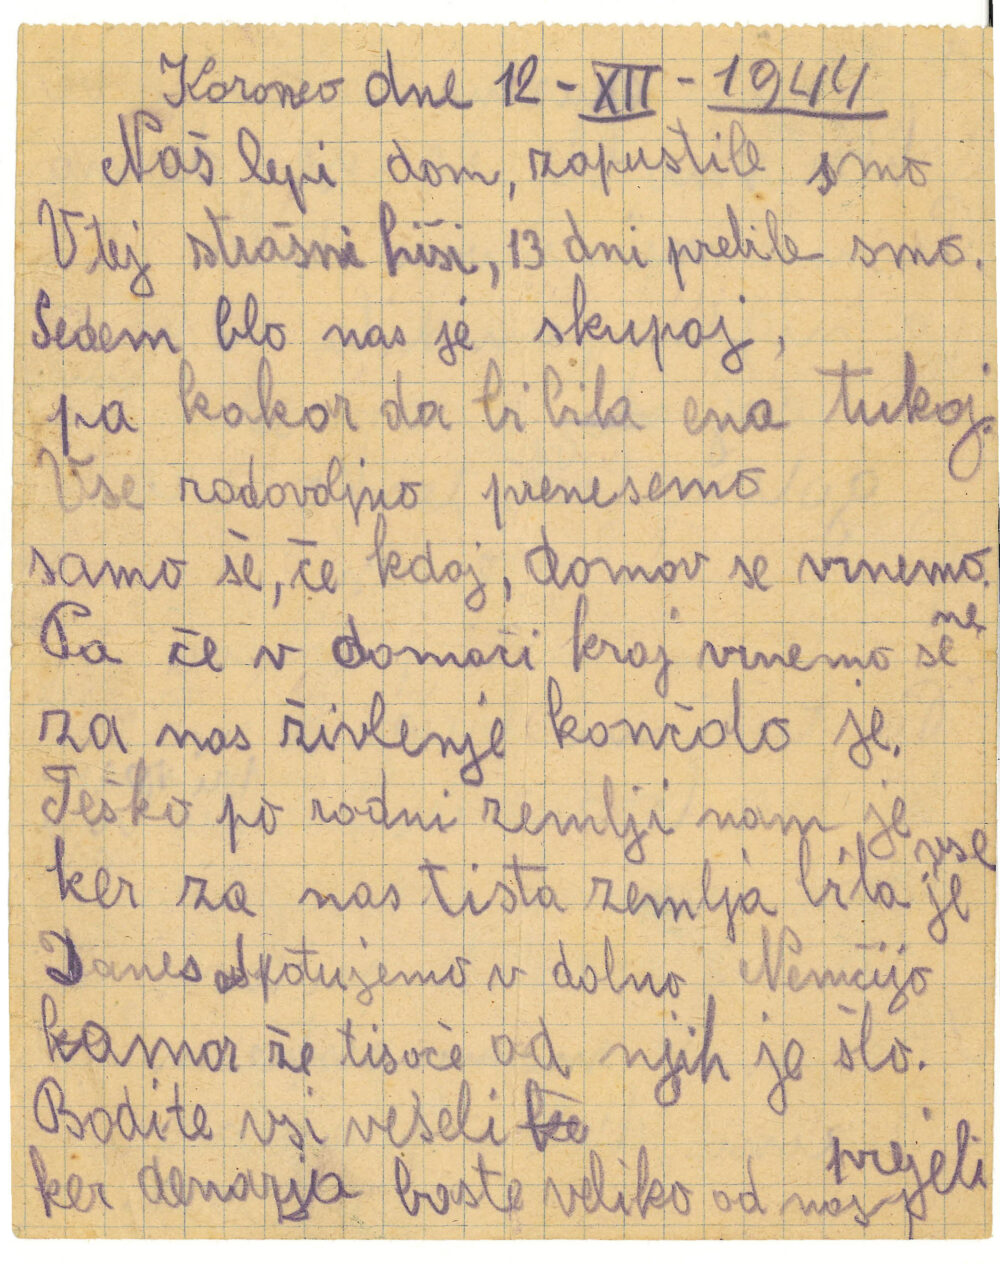 Koroneo dne 12 - XII - 1944
Naš lepi dom, zapustile smo
V tej strašni hiši, 13 dni prebile smo.
Sedem blo nas je skupaj,
pa kakor da bi bila ena tukaj.
Vse radovoljno prenesemo
samo še, če kdaj, domov se vrnemo.
Pa če v domači kraj vrnemo se ne
za nas živlenje končdo je.
Teško po rodni zemlji nam je
ker za nas tista zemlja bila je vse
Danes odpotujemo v dolno Nemčijo
kamor že tisoče od njih je šlo.
Bodite vsi veseli ke
ker denarja boste veliko od nas prejeli